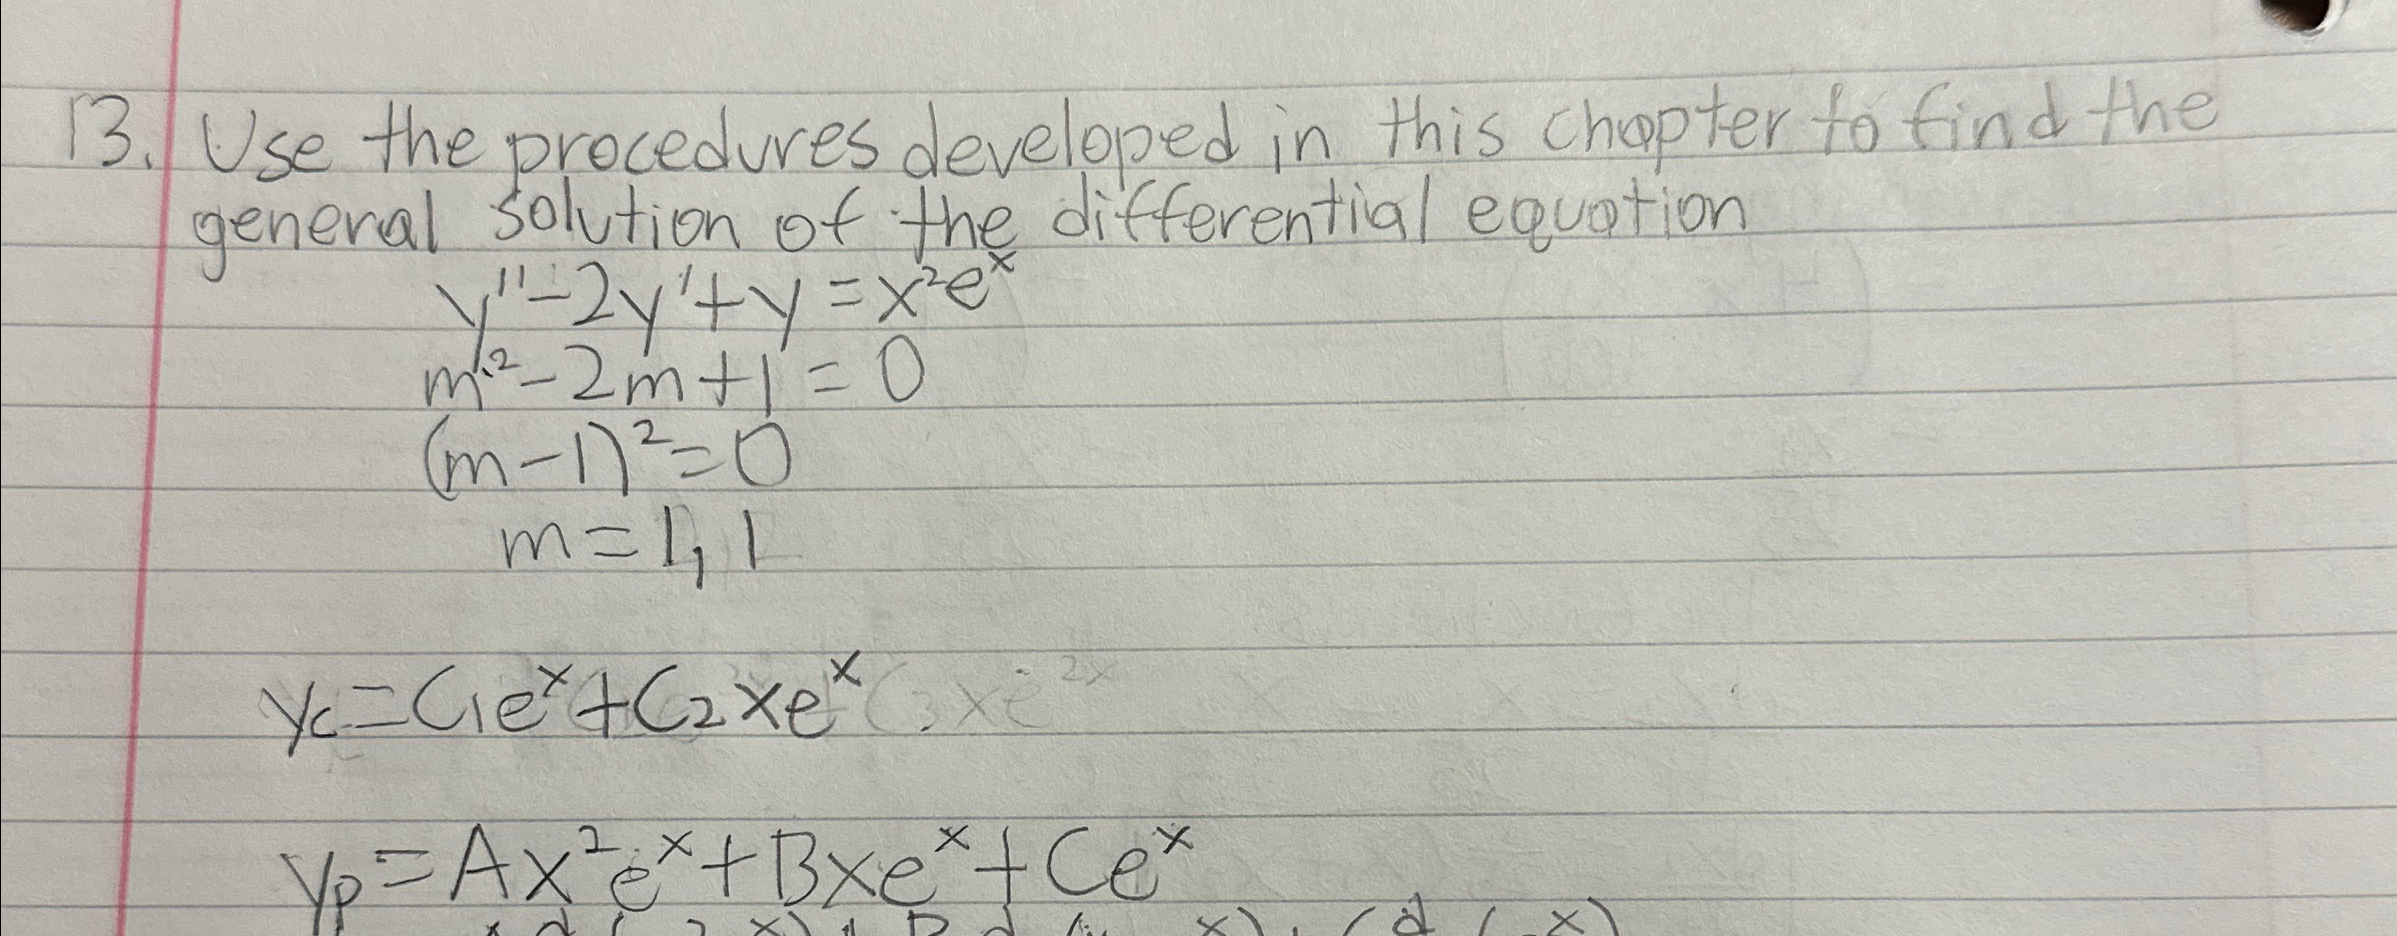 13. Use the procedures developed in this chapter to find the
general solution of the differential equation
y'' - 2y' + y = x²eˣ
m² - 2m + 1 = 0
(m - 1)² = 0
m = 1, 1
yc = C₁eˣ + C₂xeˣ
yp = Ax²eˣ + Bxeˣ + Ceˣ